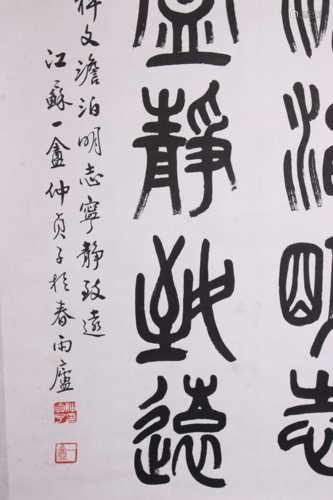 泊明志
寧靜致遠
文澹泊明志寧靜致遠
江蘇一盦仲貞子於春雨廬